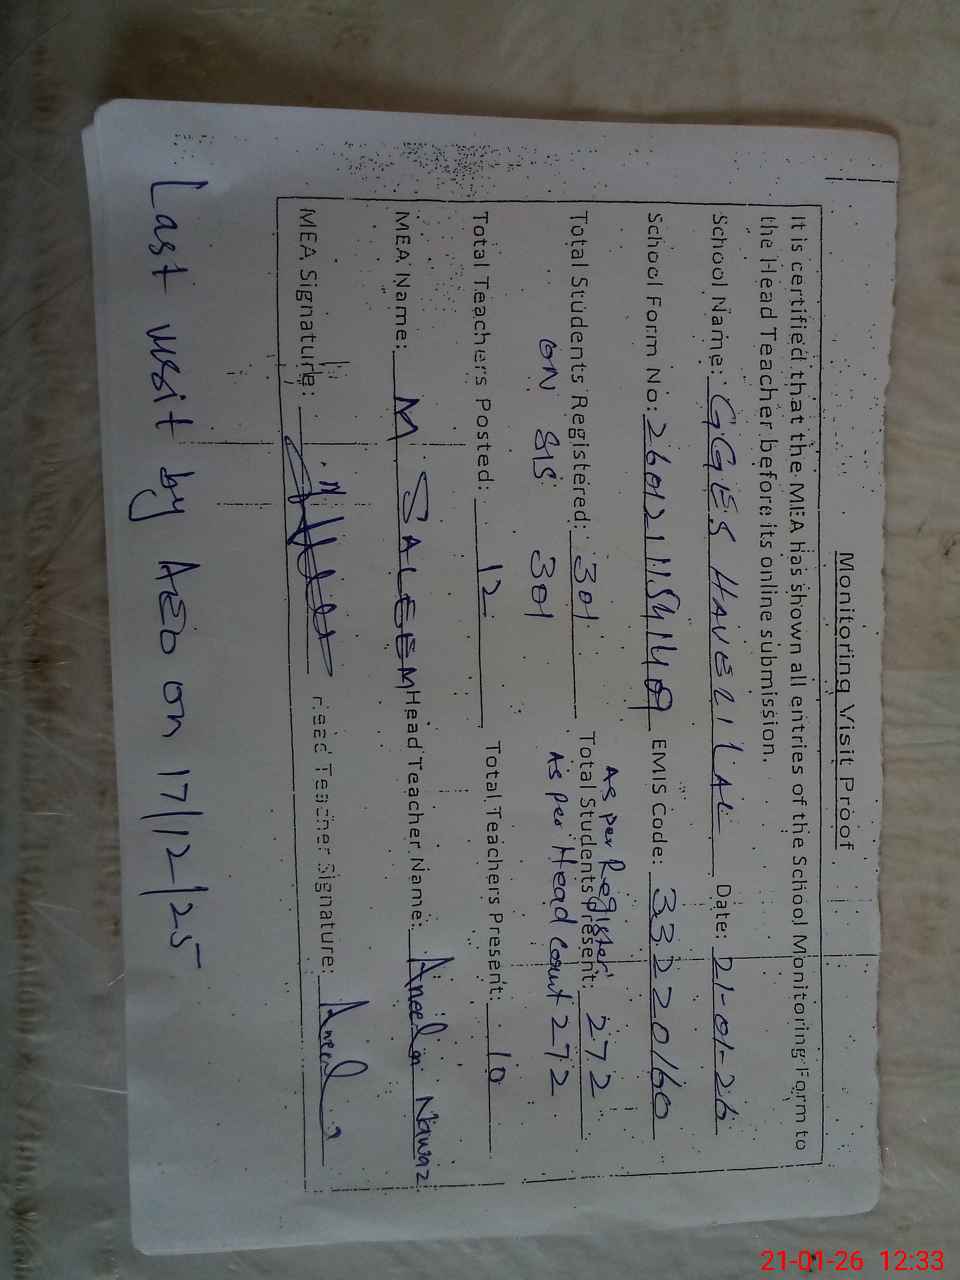 Monitoring Visit Proof
It is certified that the MEA has shown all entries of the School Monitoring Form to
the Head Teacher before its online submission.
School Name: GGES HAVELI LAL Date: 21-01-26
School Form No: EMIS Code: 33220160
As per Register
Total Students Registered: 301 Total Students Present: 272
ON SIS 301 As per Head Count 272
Total Teachers Posted: 12 Total Teachers Present: 10
MEA Name: M SALEEM Head Teacher Name: Aneela Nawaz
MEA Signature: Head Teacher Signature: Aneela
Last visit by AEO on 17/12/25
21-01-26 12:33